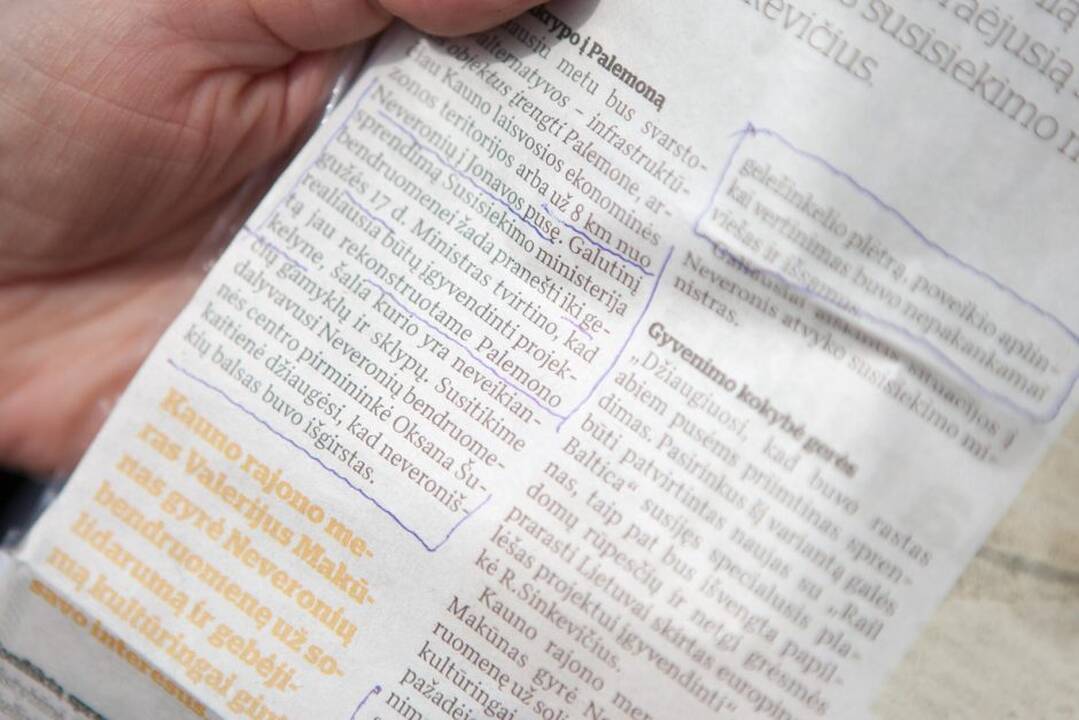 krypo į Palemoną
metu bus svarsto-
alternatyvos – infrastruktū-
objektus įrengti Palemone, ar-
čiau Kauno laisvosios ekonominės
zonos teritorijos arba už 8 km nuo
Neveronių į Jonavos pusę. Galutinį
sprendimą Susisiekimo ministerija
bendruomenei žada pranešti iki ge-
gužės 17 d. Ministras tvirtino, kad
realiausia būtų įgyvendinti projek-
tą jau rekonstruotame Palemono
kelyne, šalia kurio yra neveikian-
čių gamyklų ir sklypų. Susitikime
dalyvavusi Neveronių bendruome-
nės centro pirmininkė Oksana Šu-
kaitienė džiaugėsi, kad neveroniš-
kių balsas buvo išgirstas.
Kauno rajono me-
ras Valerijus Makū-
nas gyrė Neveronių
bendruomenę už so-
lidarumą ir gebėji-
mą kultūringai ginti
savo interesus.
susisiekimo
kevičius.
geležinkelio plėtrą, poveikio aplin-
kai vertinimas buvo nepakankamai
viešas ir
Neveronis atvyko susisiekimo mi-
nistras.
Gyvenimo kokybė gerės
„Džiaugiuosi, kad buvo rastas
abiem pusėms priimtinas spren-
dimas. Pasirinkus šį variantą galės
būti patvirtintas naujas su „Rail
Baltica“ susijęs specialusis pla-
nas, taip pat bus išvengta papil-
domų rūpesčių ir netgi grėsmės
prarasti Lietuvai skirtas europines
lėšas projektui įgyvendinti“,
kė R.Sinkevičius.
Kauno rajono mer
Makūnas gyrė Ne
ruomenę už soli
kultūringai
pažadėj
nim